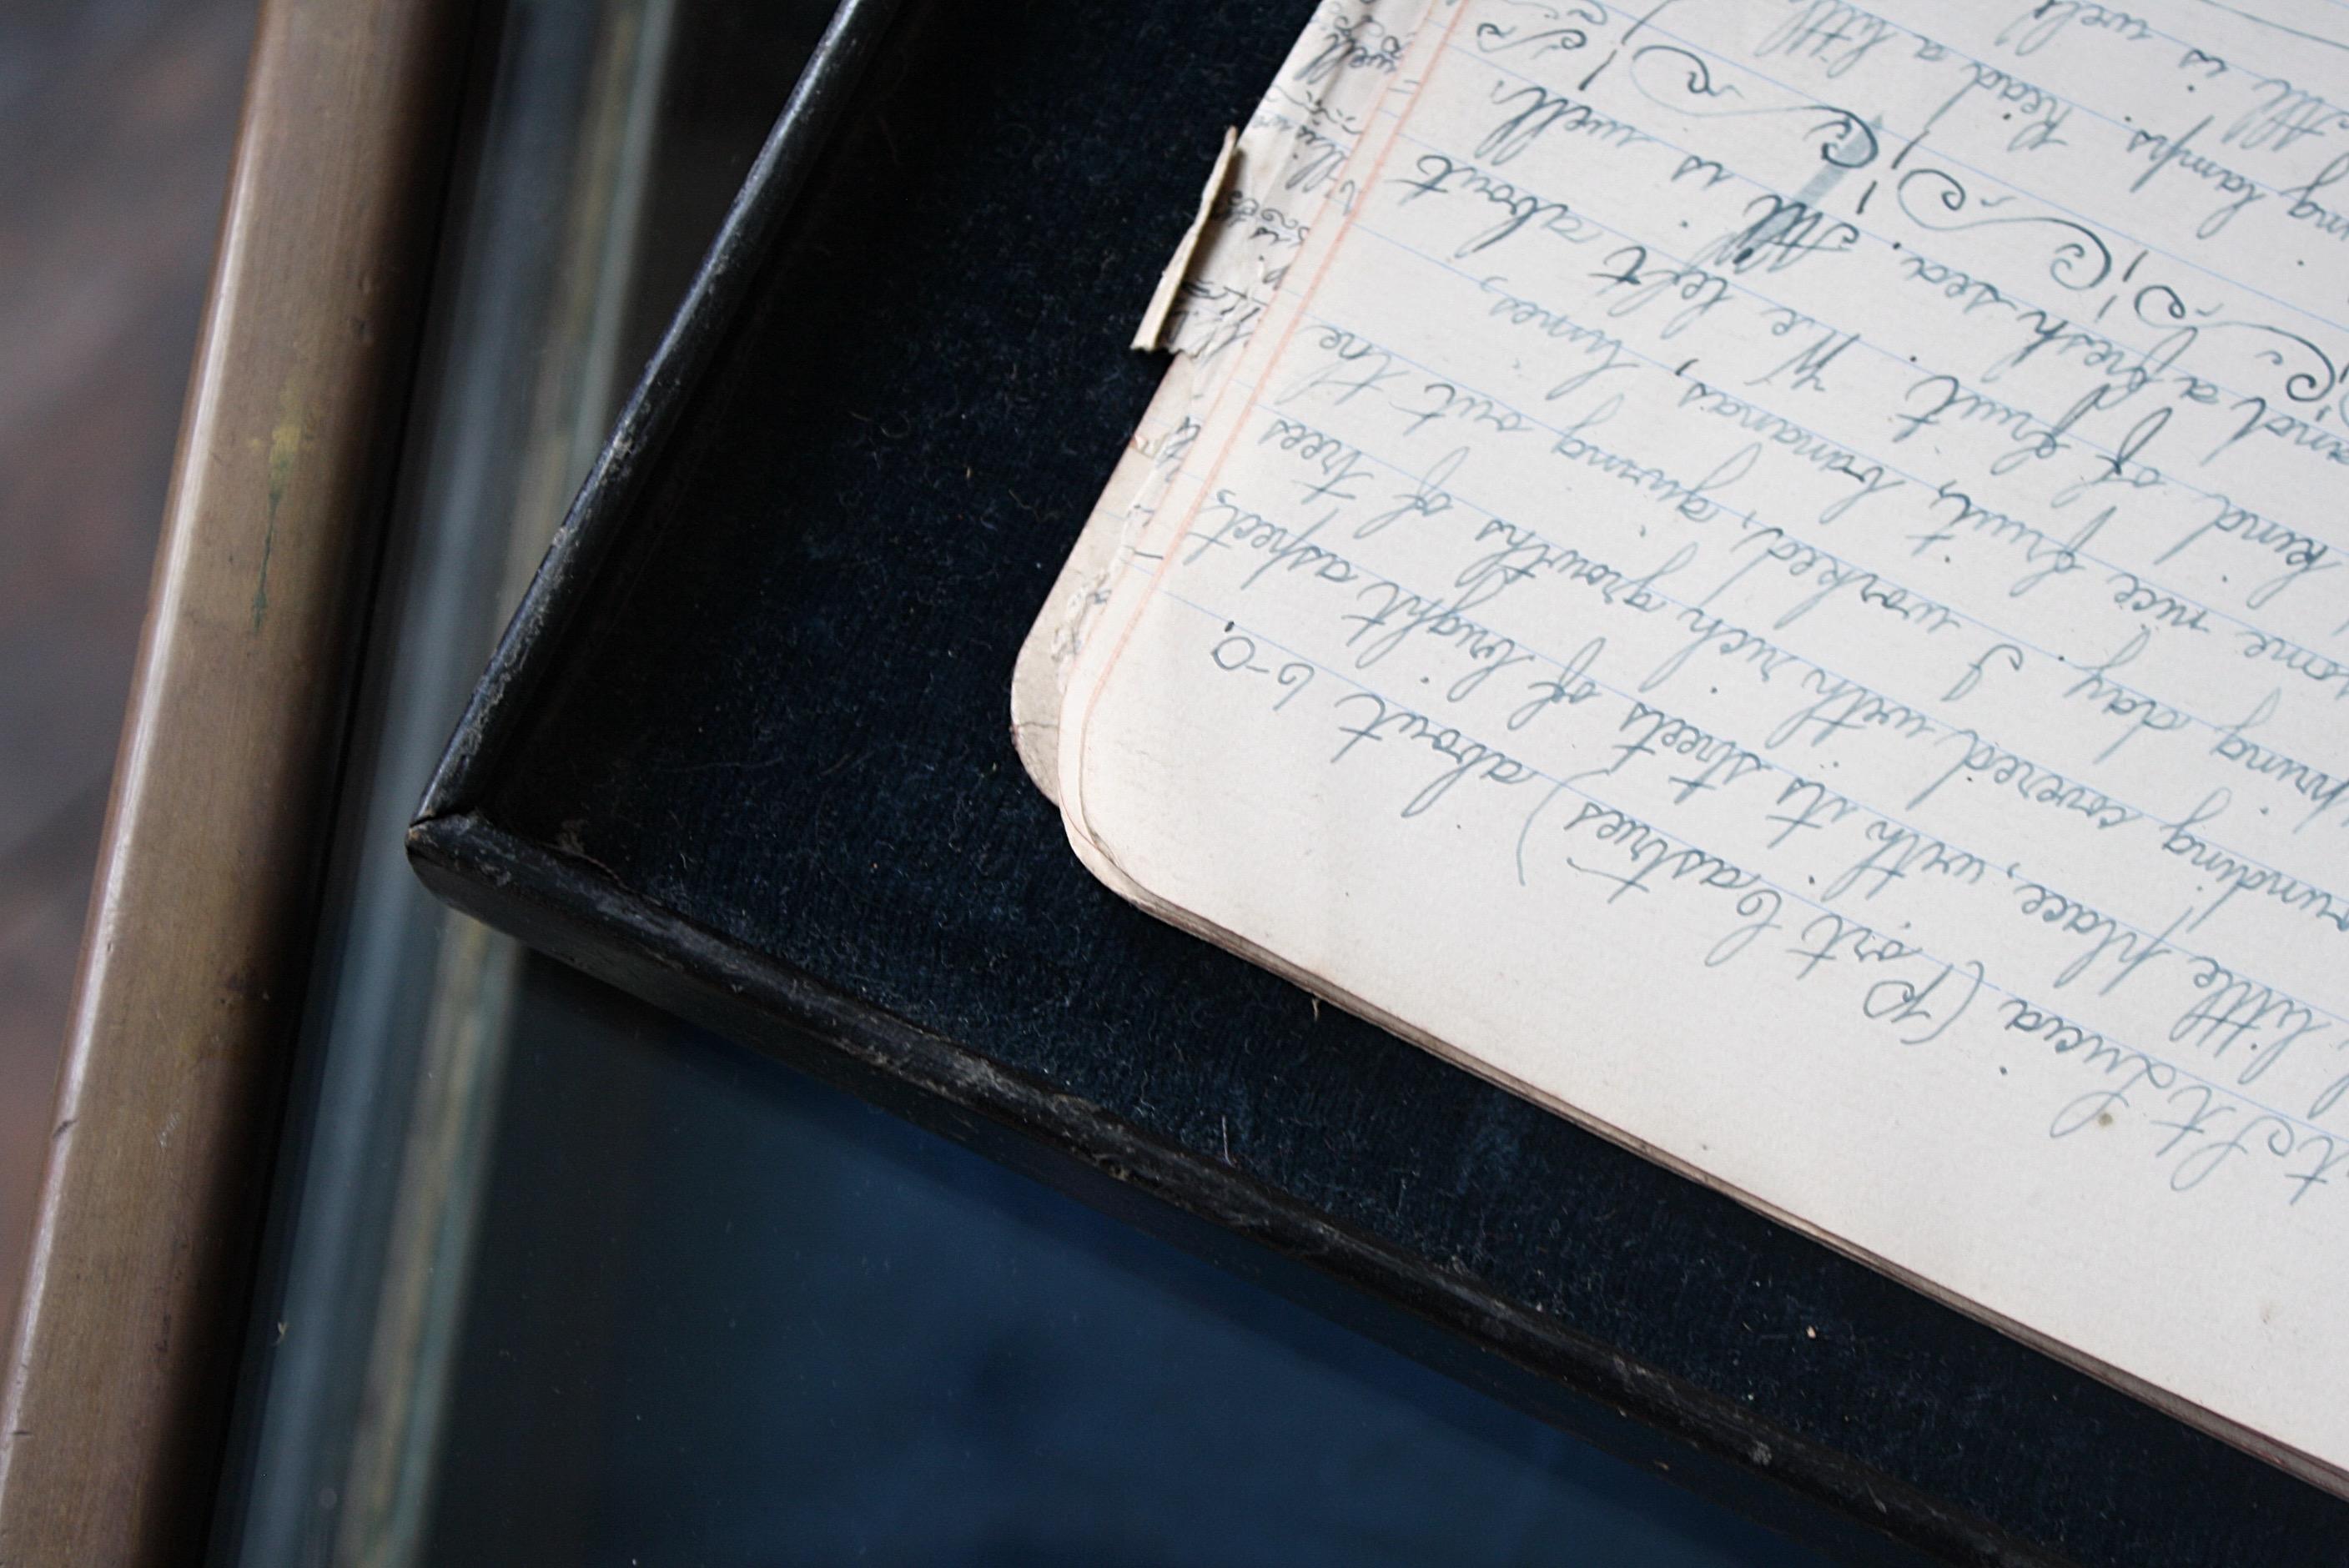 to St Lucia (Port Castries) about 6-0.
little place, with its streets of bright aspect,
ounding covered with rich growths of trees
hing day I worked, giving out the
ome nice fruit, bananas, limes,
kind of fruit We left about
and a fresh sea. All is well.
ing lamps. Read a little
All is well